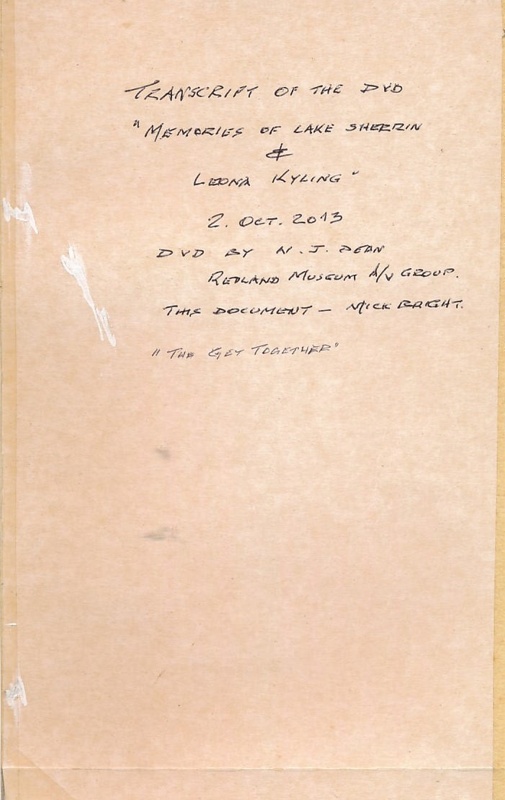 TRANSCRIPT OF THE DVD
"MEMORIES OF LAKE SHERRIN
&
LEONA KYLING"
2. OCT. 2013
DVD BY N. J. DEAN
REDLAND MUSEUM A/V GROUP.
THIS DOCUMENT — MICK BRIGHT.
"THE GET TOGETHER"